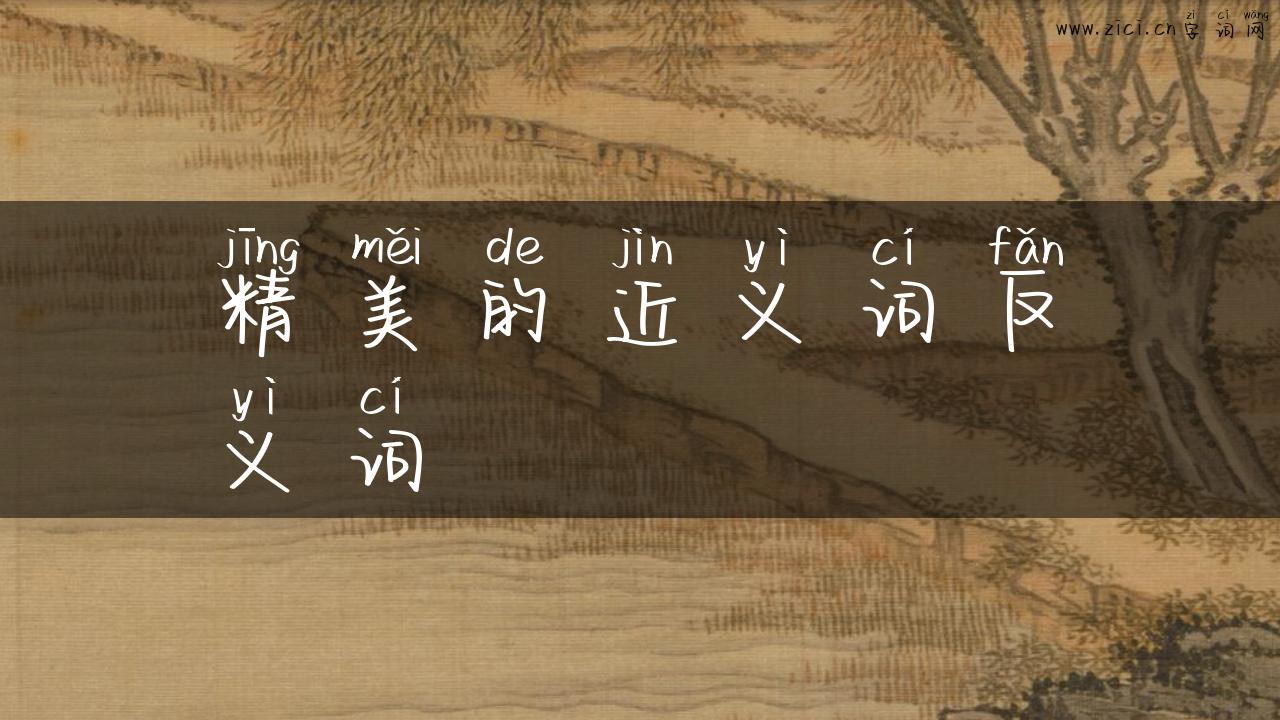 zì cí wǎng
www.zici.cn字词网
jīng měi de jìn yì cí fǎn
精美的近义词反
yì cí
义词